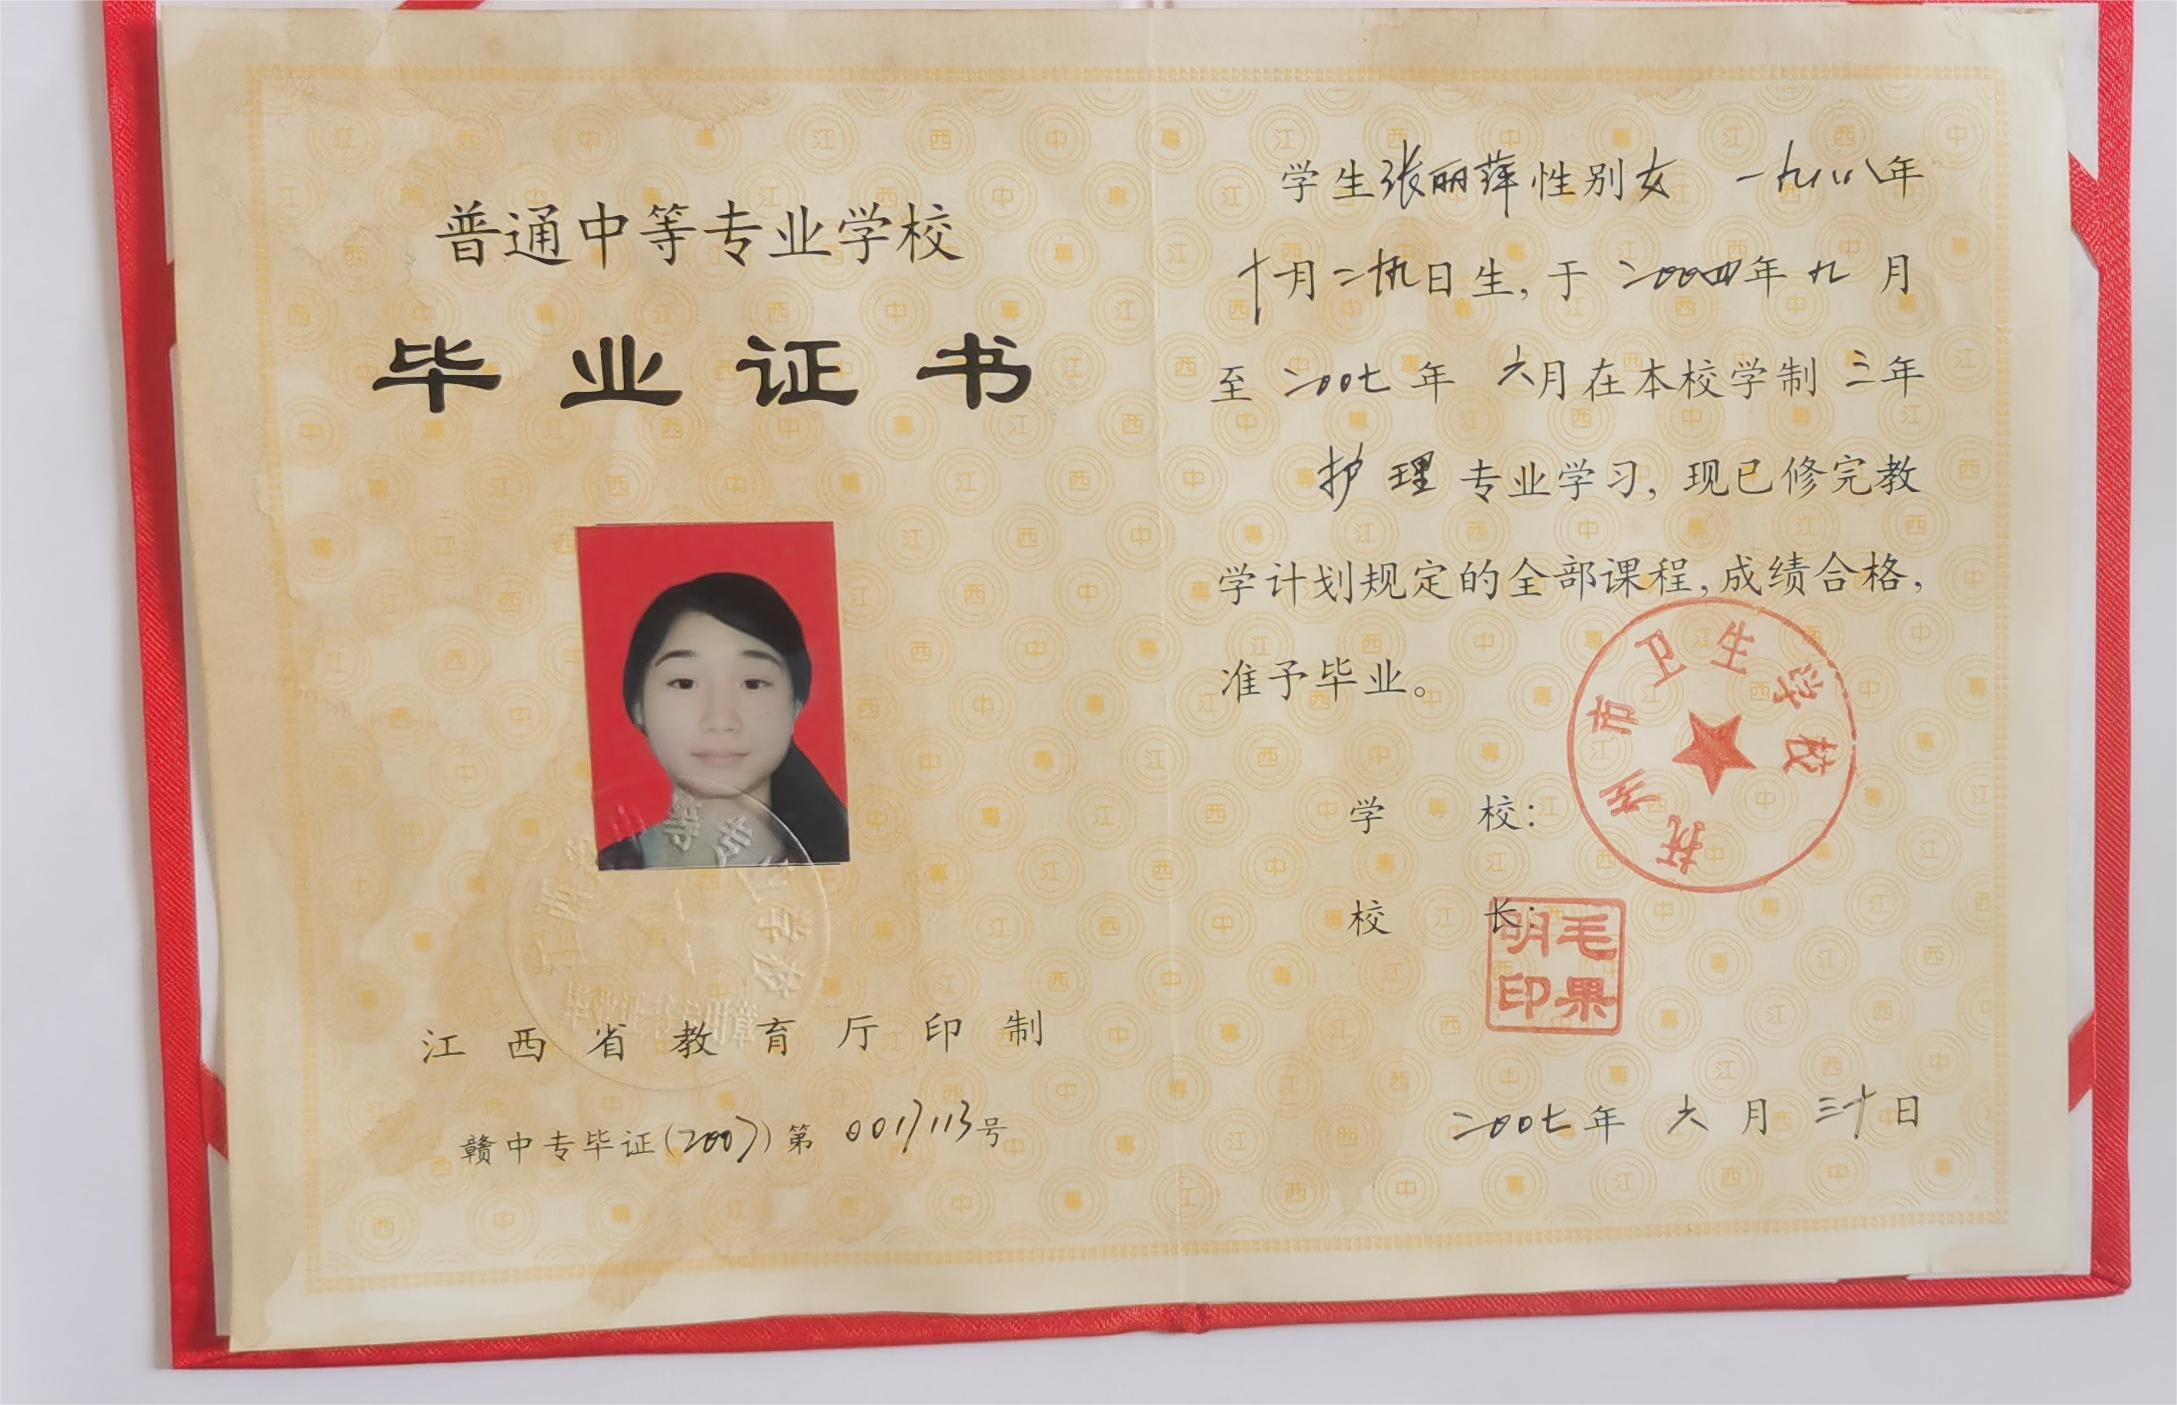 普通中等专业学校
毕业证书
江西省教育厅印制
赣中专毕证(2007)第0017113号
学生张丽萍性别女 一九八八年
十月二十九日生,于二〇〇四年九月
至二〇〇七年 六月在本校学制三年
护理专业学习,现已修完教
学计划规定的全部课程,成绩合格,
准予毕业。
学 校:
抚州市卫生学校
校 长:
毛果明印
二〇〇七年六月三十日